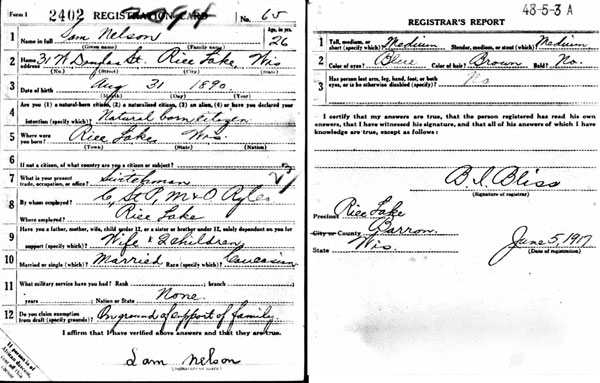 Form 1 2402 REGISTRATION CARD No. 65
1 Name in full Sam Nelson Age, in yrs. 26
(Given name) (Family name)
2 Home address 31 W Douglas St. Rice Lake, Wis
(No.) (Street) (City) (State)
3 Date of birth Aug 31 1890
(Month) (Day) (Year)
4 Are you (1) a natural-born citizen, (2) a naturalized citizen, (3) an alien, (4) or have you declared your
intention (specify which)? Natural born citizen
5 Where were you born? Rice Lake Wis.
(Town) (State) (Nation)
6 If not a citizen, of what country are you a citizen or subject?
7 What is your present trade, occupation, or office? Switchman
8 By whom employed? C, St P, M & O Ry Co
Where employed? Rice Lake
9 Have you a father, mother, wife, child under 12, or a sister or brother under 12, solely dependent on you for
support (specify which)? Wife & 2 children
10 Married or single (which)? Married Race (specify which)? Caucasian
11 What military service have you had? Rank ; branch ;
years ; Nation or State None.
12 Do you claim exemption from draft (specify grounds)? On ground of support of family.
I affirm that I have verified above answers and that they are true.
Sam Nelson
If person is of African descent, tear off this corner
48-5-3 A
REGISTRAR'S REPORT
1 Tall, medium, or short (specify which)? Medium Slender, medium, or stout (which)? Medium
2 Color of eyes? Blue Color of hair? Brown Bald? No.
3 Has person lost arm, leg, hand, foot, or both eyes, or is he otherwise disabled (specify)? No
I certify that my answers are true, that the person registered has read his own
answers, that I have witnessed his signature, and that all of his answers of which I
have knowledge are true, except as follows:
B. I. Bliss
(Signature of registrar)
Precinct Rice Lake
City or County Barron.
State Wis.
June 5, 1917
(Date of registration)